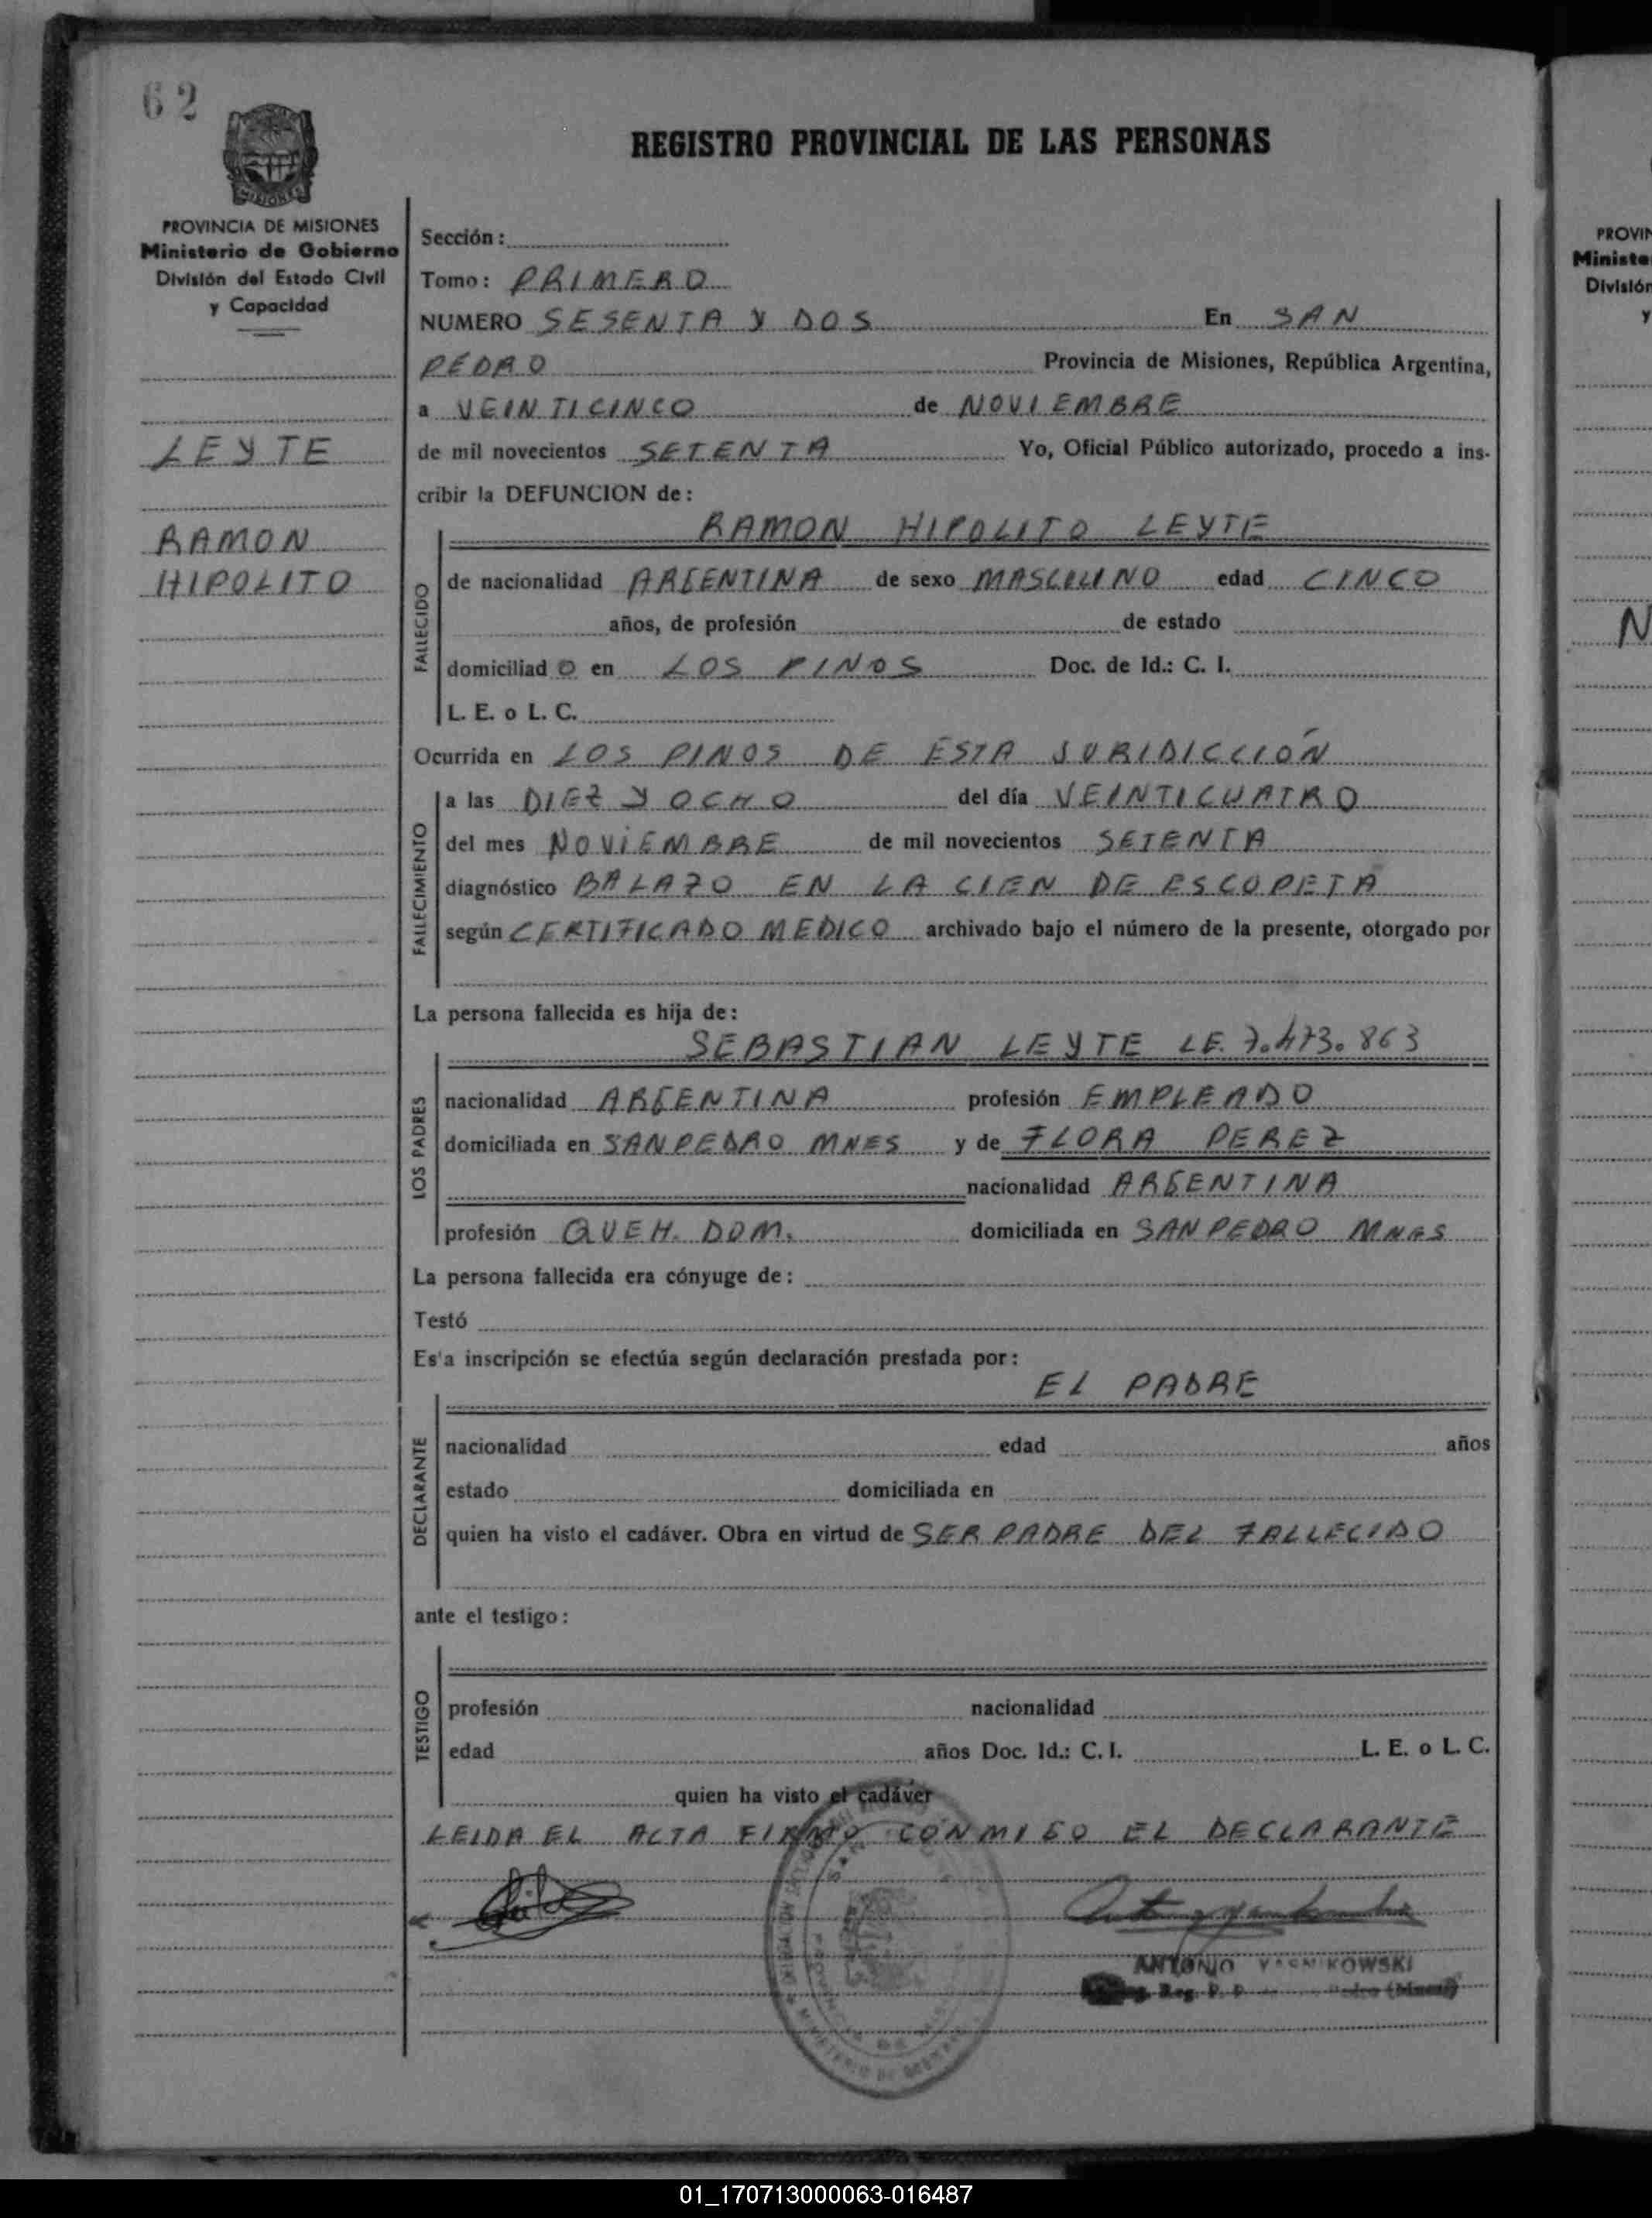 62
MISIONES
REGISTRO PROVINCIAL DE LAS PERSONAS
PROVINCIA DE MISIONES
Ministerio de Gobierno
División del Estado Civil
y Capacidad
LEYTE
RAMON
HIPOLITO
Sección:
Tomo: PRIMERO
NUMERO SESENTA Y DOS En SAN
PEDRO Provincia de Misiones, República Argentina,
a VEINTICINCO de NOVIEMBRE
de mil novecientos SETENTA Yo, Oficial Público autorizado, procedo a ins-
cribir la DEFUNCION de:
RAMON HIPOLITO LEYTE
FALLECIDO
de nacionalidad ARGENTINA de sexo MASCULINO edad CINCO
años, de profesión de estado
domiciliad O en LOS PINOS Doc. de Id.: C. I.
L. E. o L. C.
Ocurrida en LOS PINOS DE ESTA JURIDICCIÓN
FALLECIMIENTO
a las DIEZ Y OCHO del día VEINTICUATRO
del mes NOVIEMBRE de mil novecientos SETENTA
diagnóstico BALAZO EN LA CIEN DE ESCOPETA
según CERTIFICADO MEDICO archivado bajo el número de la presente, otorgado por
La persona fallecida es hija de:
SEBASTIAN LEYTE LE. 7.473.863
LOS PADRES
nacionalidad ARGENTINA profesión EMPLEADO
domiciliada en SAN PEDRO MNES y de FLORA PEREZ
nacionalidad ARGENTINA
profesión QUEH. DOM. domiciliada en SAN PEDRO MNES
La persona fallecida era cónyuge de:
Testó
Es'a inscripción se efectúa según declaración prestada por:
EL PADRE
DECLARANTE
nacionalidad edad años
estado domiciliada en
quien ha visto el cadáver. Obra en virtud de SER PADRE DEL FALLECIDO
ante el testigo:
TESTIGO
profesión nacionalidad
edad años Doc. Id.: C. I. L. E. o L. C.
quien ha visto el cadáver
LEIDA EL ACTA FIRMO CONMIGO EL DECLARANTE
ANTONIO YASNIKOWSKI
Reg.
PROVIN
Ministe
División
y
N
01_170713000063-016487